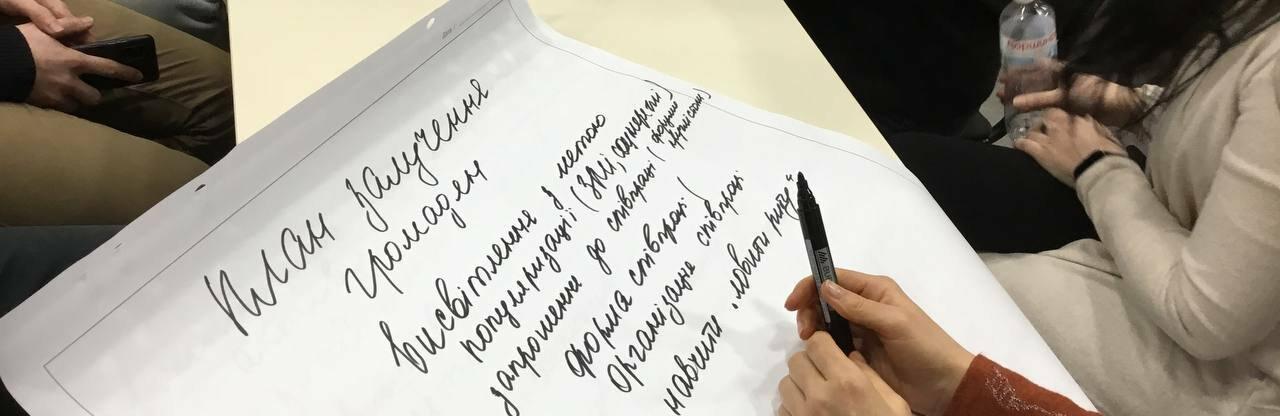 План залучення
громадян
Висвітлення з метою
популяризації (ЗМІ, соцмережі)
запрошення до співпраці (
форма співпраці (
Організація співпраці
навчити „ловити рибу"